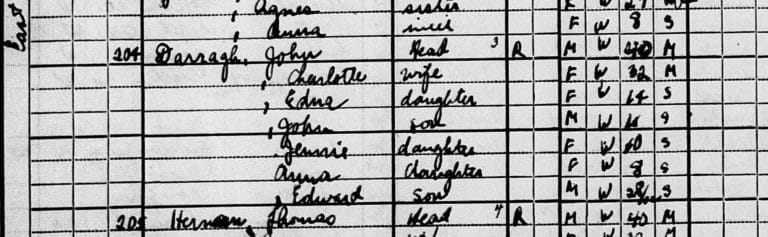 East
, Agnes sister F W 29 M
, Anna niece F W 8 S
204 Darragh, John Head 3 R M W 40 M
, Charlotte wife F W 32 M
, Edna daughter F W 14 S
, John son M W S
Jennie daughter F W 10 S
Anna daughter F W 8 S
, Edward son M W S
205 Thomas Head 4 R M W 40 M